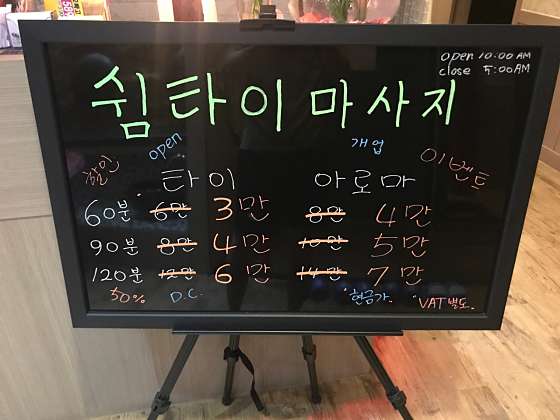 open 10:00 AM
close 5:00AM
쉼타이마사지
할인 open 개업 이벤트
타이 아로마
60분 6만 3만 8만 4만
90분 8만 4만 10만 5만
120분 12만 6만 14만 7만
50% D.C. 현금가. VAT별도.